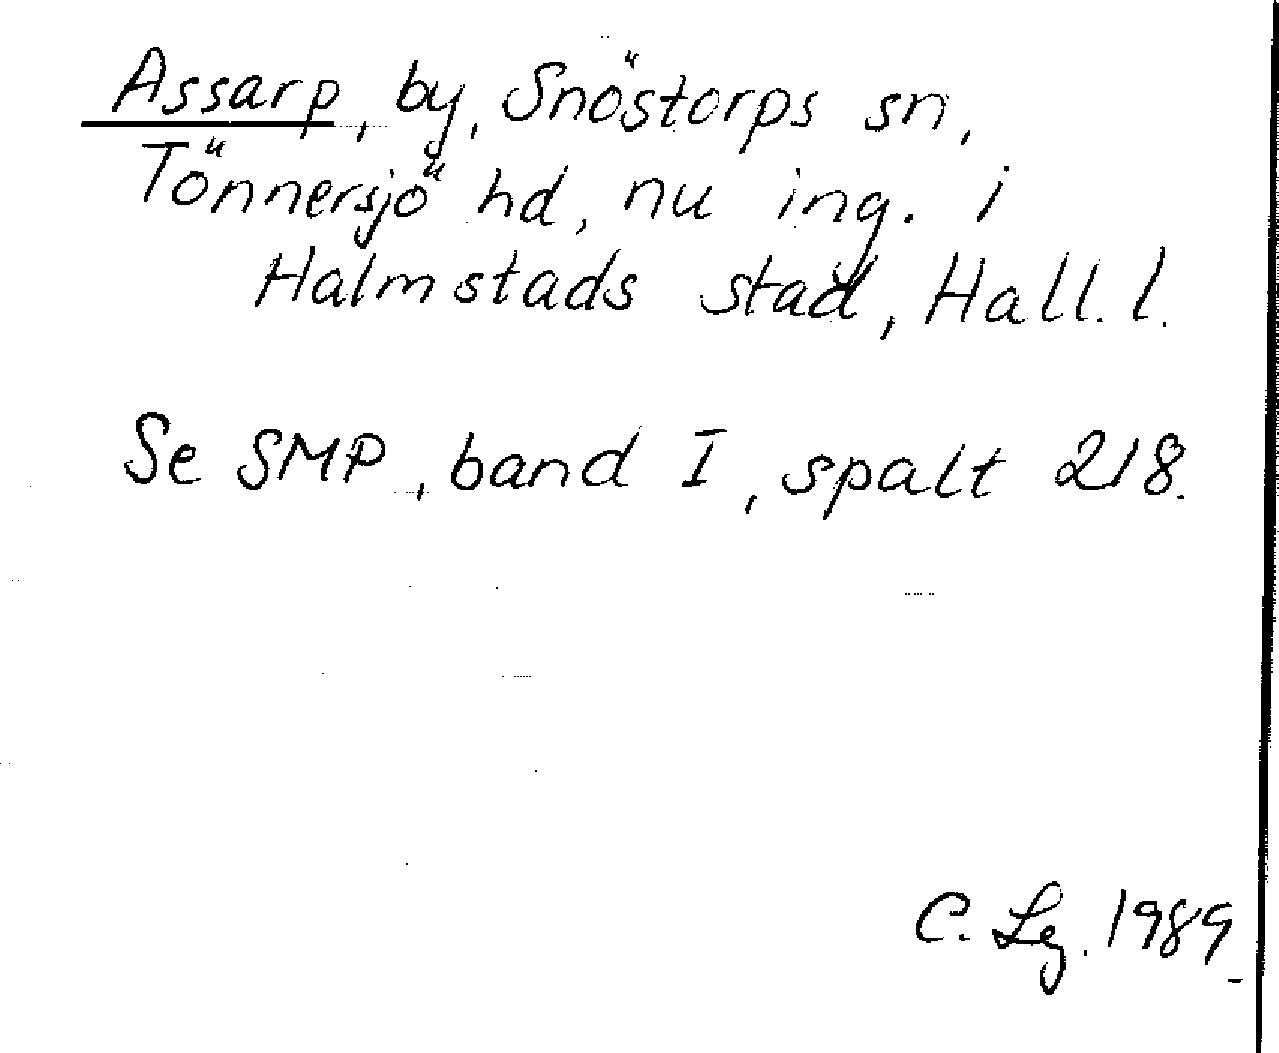 Assarp, by, Snöstorps sn,
Tönnersjö hd, nu ing. i
Halmstads stad, Hall. l.
Se SMP, band I, spalt 218.
C. Lg. 1989